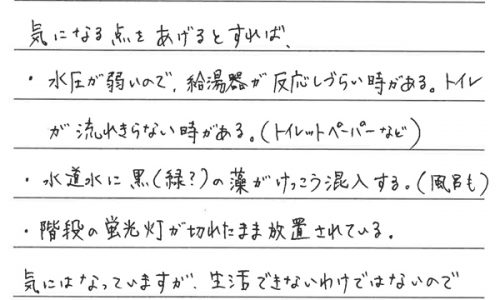 気になる点をあげるとすれば、
・水圧が弱いので、給湯器が反応しづらい時がある。トイレ
が流れきらない時がある。(トイレットペーパーなど)
・水道水に黒(緑?)の藻がけっこう混入する。(風呂も)
・階段の蛍光灯が切れたまま放置されている。
気にはなっていますが、生活できないわけではないので